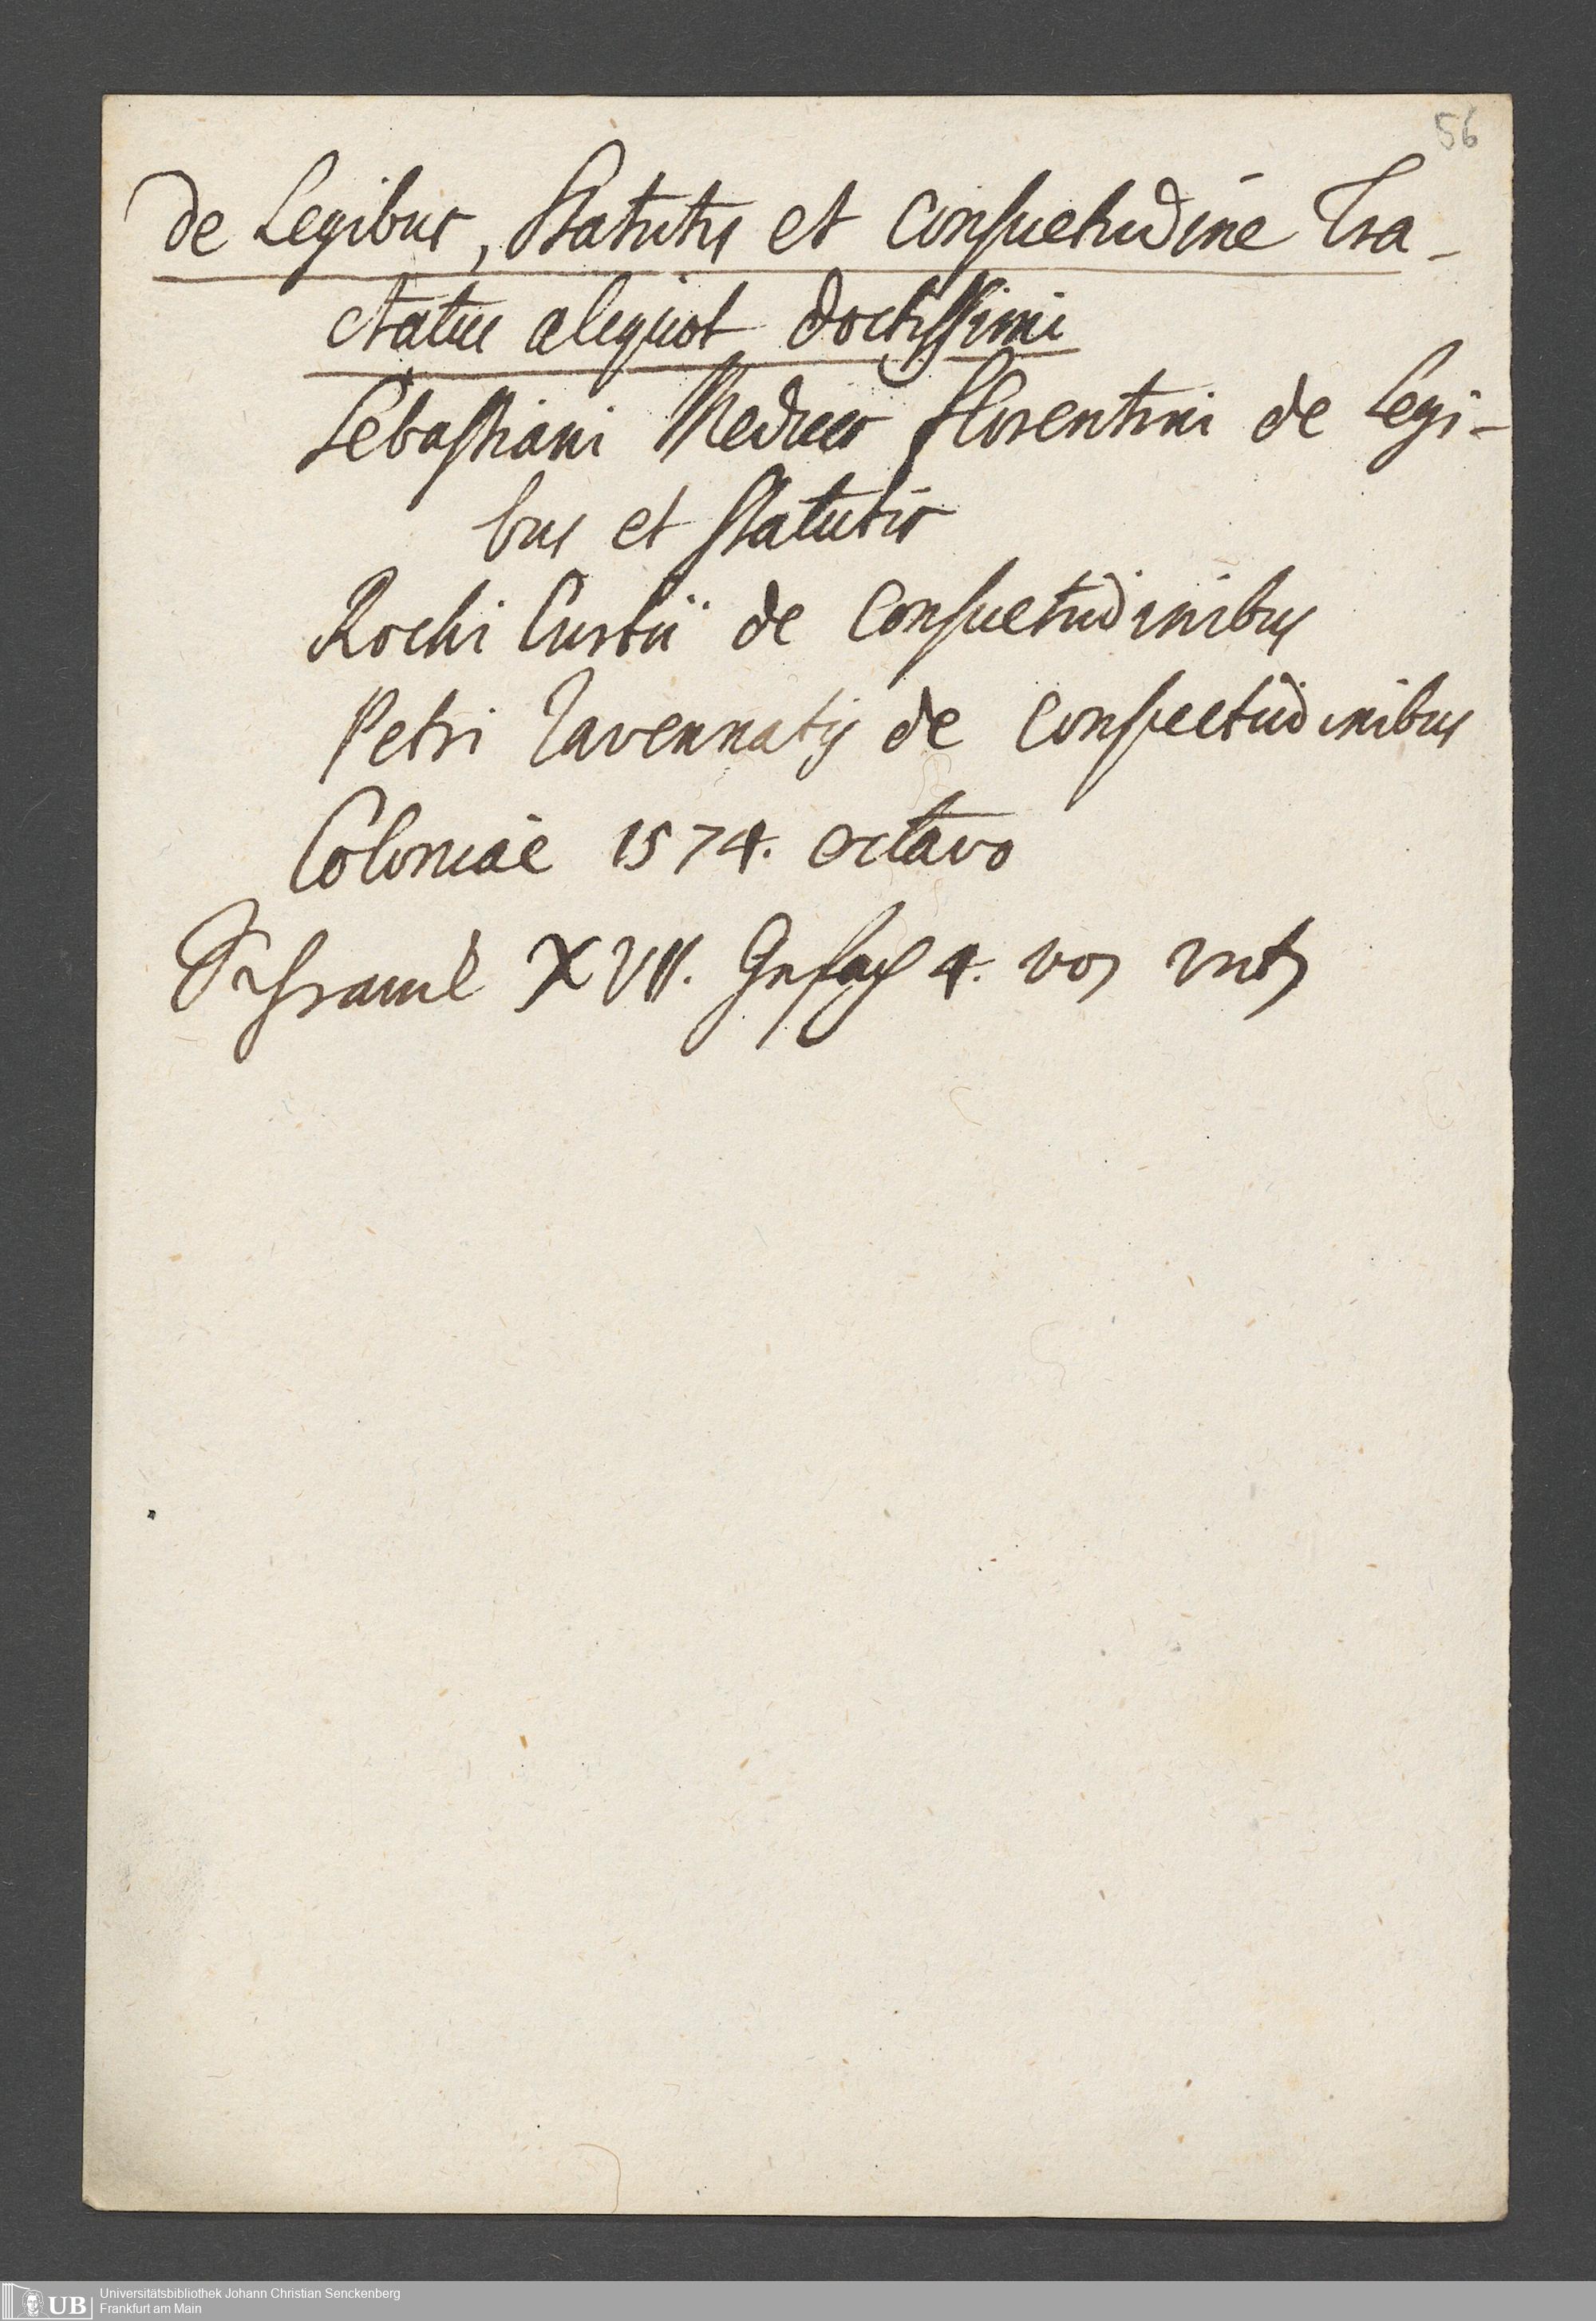 56
de Legibus, Statutis et consuetudine Tra-
ctatus aliquot doctissimi
Sebastiani Medices Florentini de Legi-
bus et Statutis
Rochi Curtii de Consuetudinibus
Petri Ravennatis de consuetudinibus
Coloniae 1574. octavo
Schranck XVII. Gefach 4. von unten
UB
Universitätsbibliothek Johann Christian Senckenberg
Frankfurt am Main